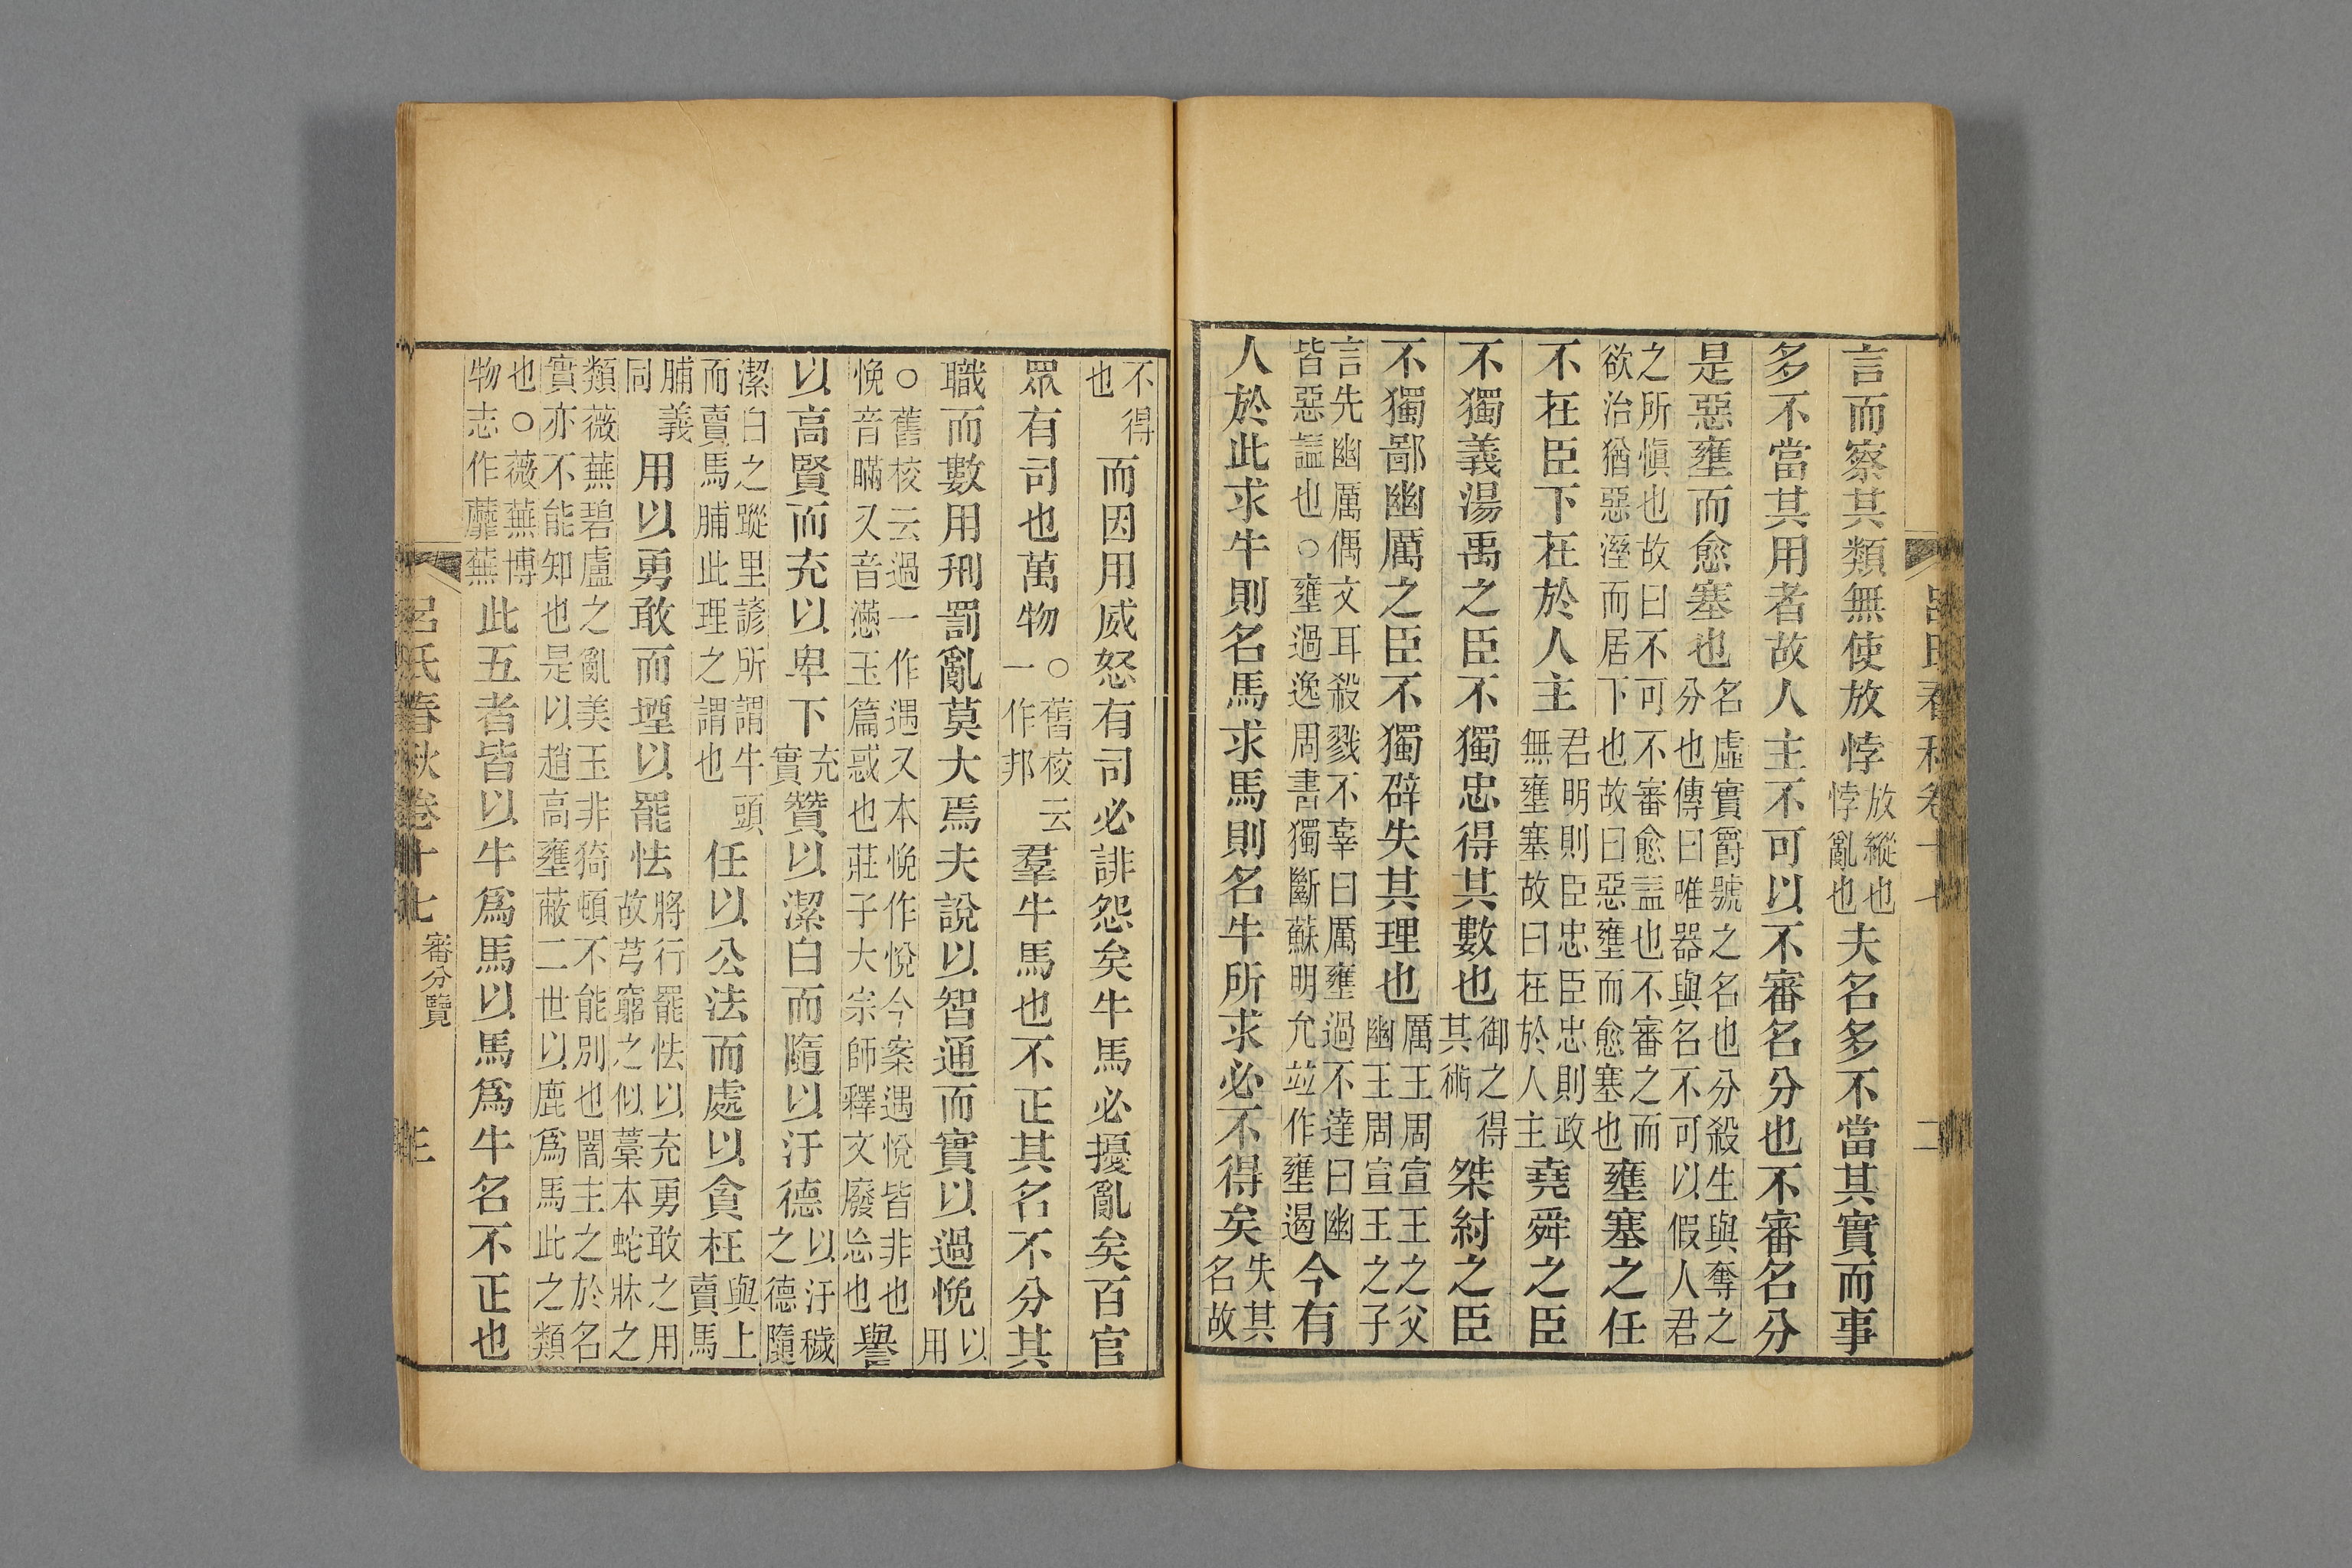 言而察其類無使放悖放縱也悖亂也夫名多不當其實而事
多不當其用者故人主不可以不審名分也不審名分
是惡壅而愈塞也名虛實爵號之名也分殺生與奪之分也傳曰唯器與名不可以假人君
之所愼也故曰不可不審愈益也不審之而欲治猶惡溼而居下也故曰惡壅而愈塞也壅塞之任
不在臣下在於人主君明則臣忠臣忠則政無壅塞故曰在於人主堯舜之臣
不獨義湯禹之臣不獨忠得其數也御之得其術桀紂之臣
不獨鄙幽厲之臣不獨辟失其理也厲王周宣王之父幽王周宣王之子
言先幽厲偶文耳殺戮不辜曰厲壅過不達曰幽皆惡諡也○壅過逸周書獨斷蘇明允竝作壅遏今有
人於此求牛則名馬求馬則名牛所求必不得矣失其名故
呂氏春秋卷十七 二
不得也而因用威怒有司必誹怨矣牛馬必擾亂矣百官
眾有司也萬物○舊校云一作邦羣牛馬也不正其名不分其
職而數用刑罰亂莫大焉夫說以智通而實以過悗以用
○舊校云過一作遇又本悗作悅今案遇悅皆非也悗音瞞又音懣玉篇惑也莊子大宗師釋文廢忘也譽
以高賢而充以卑下充實贊以潔白而隨以汙德以汙穢之德隨
潔白之蹤里諺所謂牛頭而賣馬脯此理之謂也任以公法而處以貪枉與上賣馬
脯義同用以勇敢而堙以罷怯將行罷怯以充勇敢之用故芎竆之似藁本蛇牀之
類薇蕪碧盧之亂美玉非猗頓不能別也闇主之於名實亦不能知也是以趙高壅蔽二世以鹿爲馬此之類
也○薇蕪博物志作蘼蕪此五者皆以牛爲馬以馬爲牛名不正也
呂氏春秋卷十七 審分覽 三